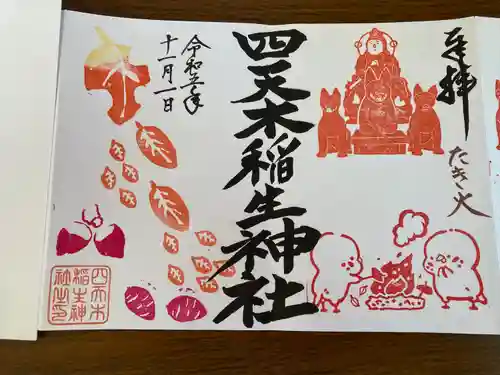 奉拝
たき火
四天木稲生神社
令和五年
十一月一日
四天木
稲生神
社之印